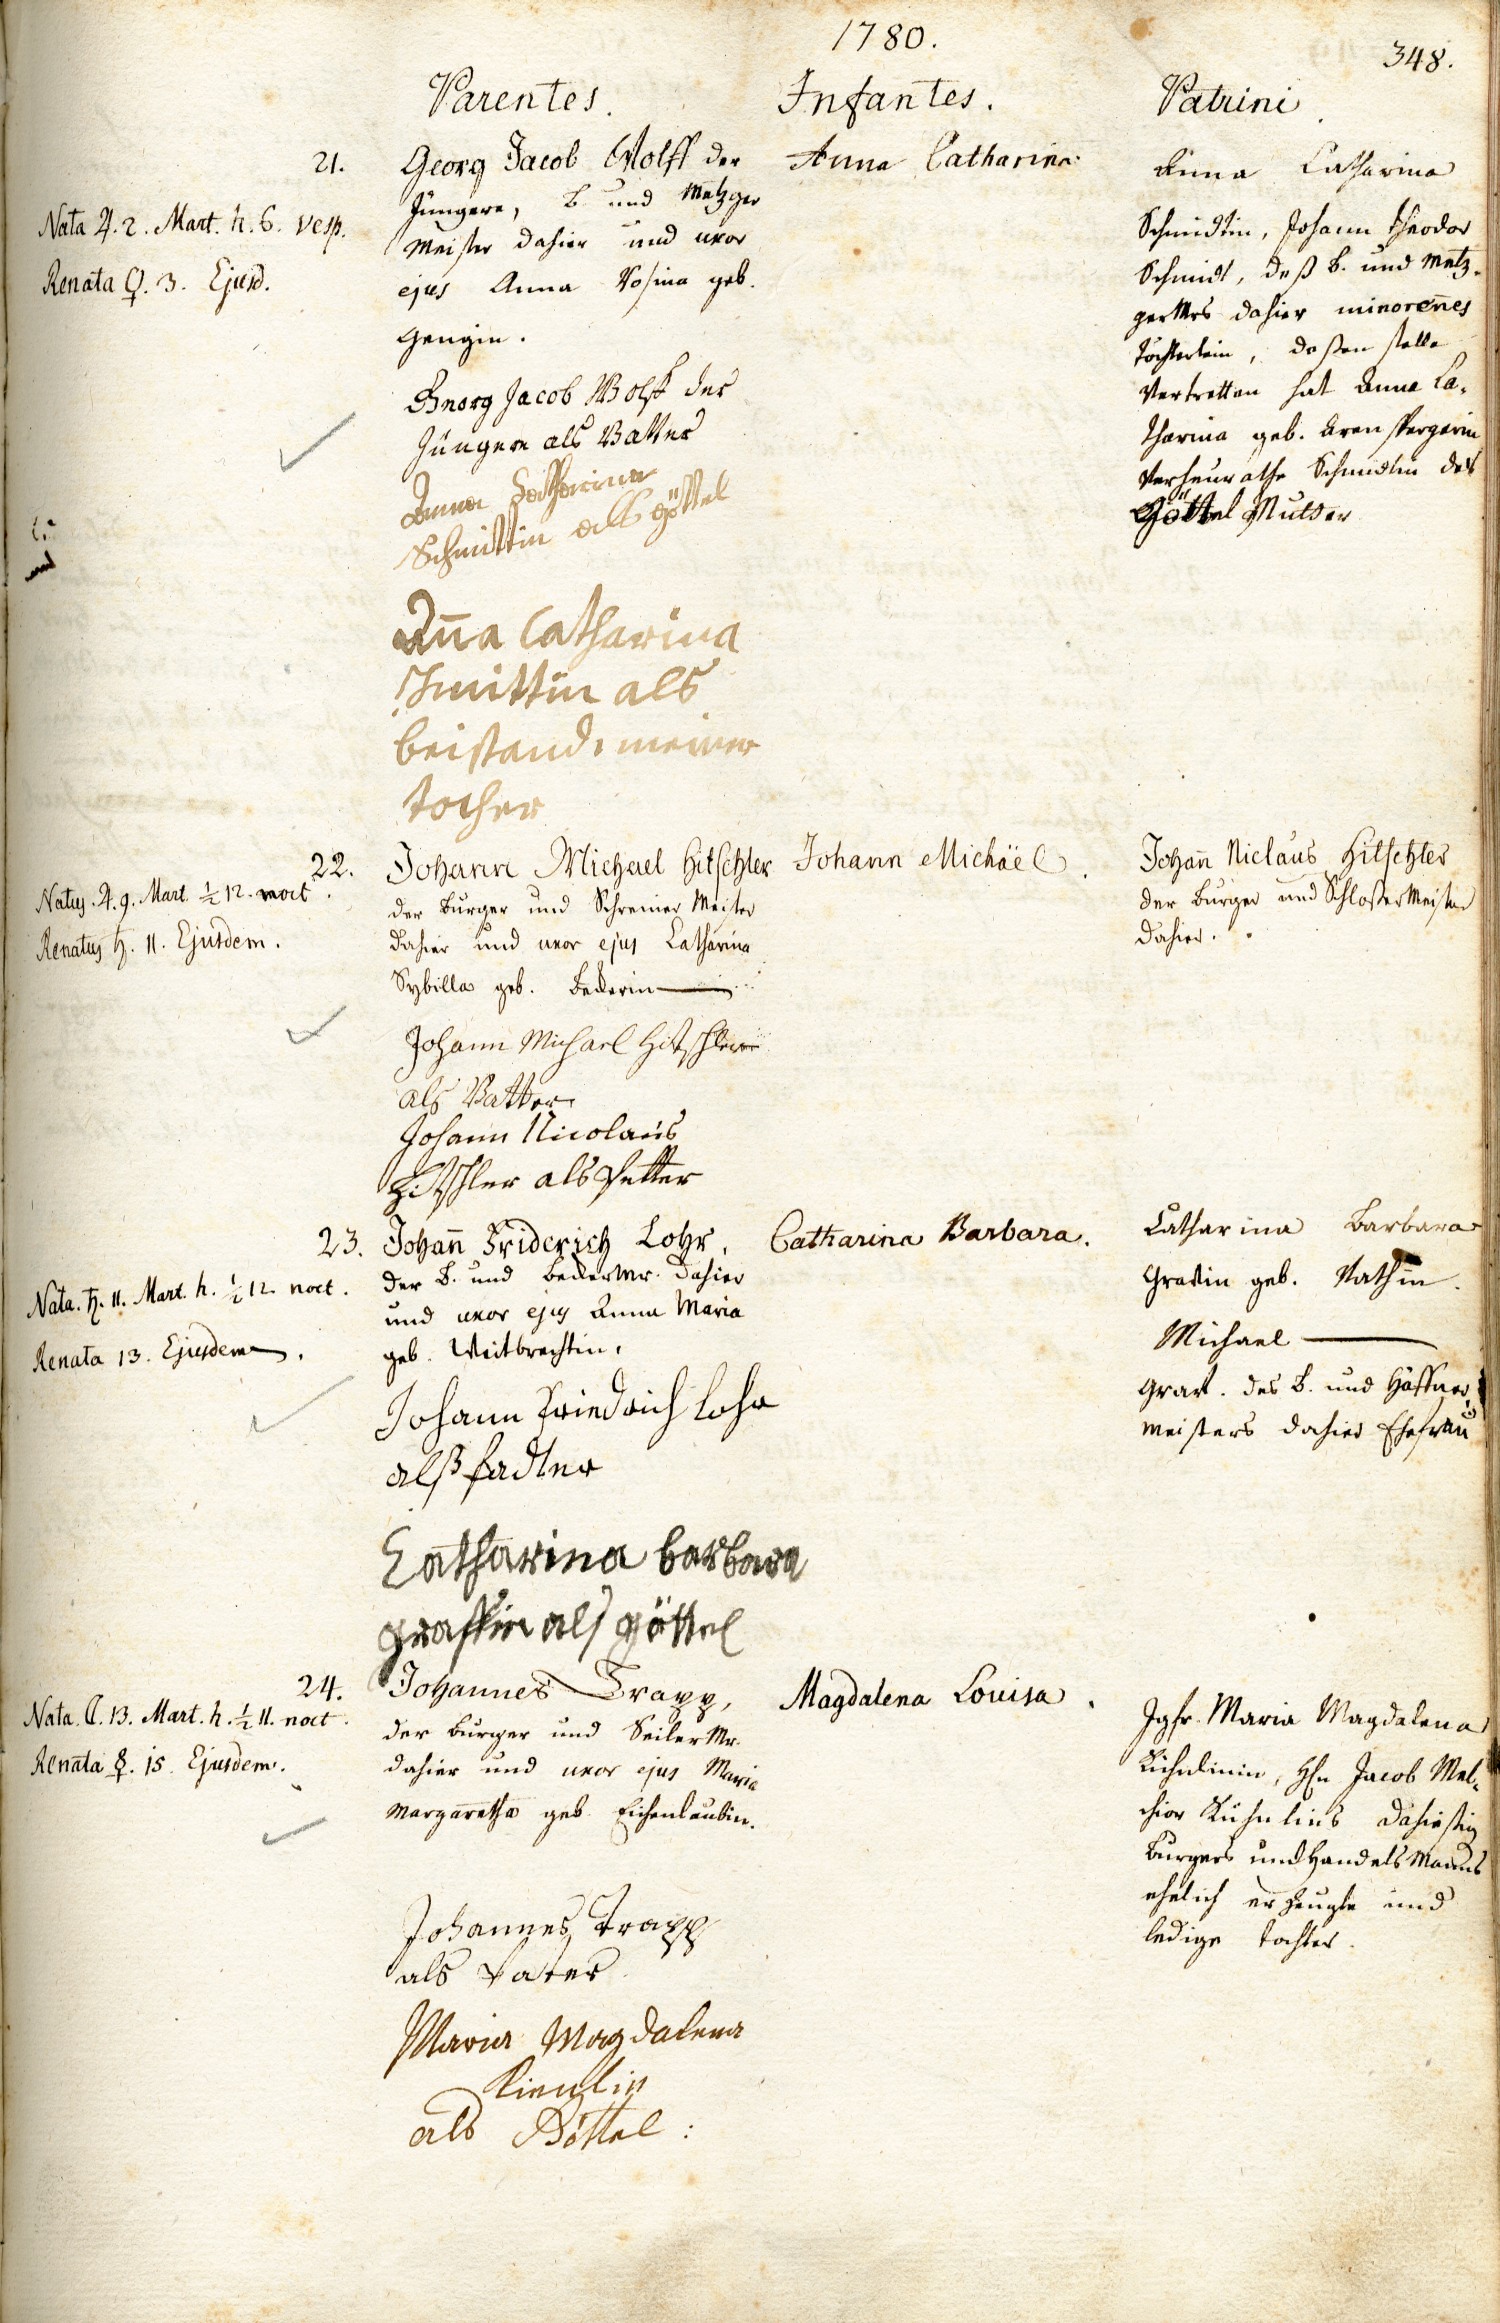 1780.
348.
Parentes.
Infantes.
Patrini
21.
Nata ♃. 2. Mart. h. 6. vesp.
Renata ♀. 3. Ejusd.
Georg Jacob Wolff der
Jüngere, B und Metzger
Meister dahier und uxor
ejus Anna Rosina geb.
Gengin.
Georg Jacob Wolff der
Jüngere als Vatter
Anna Catharina
Schmittin als göttel
Aña Catharina
Smittin als
beistand meiner
tocher
Anna Catharina
Anna Catharina
Schmidtin, Johann Theodor
Schmidt, deß B. und Metz-
germrs dahier minoreñes
Töchterlein, deßen stelle
Vertretten hat Anna Ca-
tharina geb. Arensbergerin
Verheurathe Schmidtin des
Göttel Mutter
22.
Natus ♃. 9. Mart. ½ 12. noct.
Renatus ♄. 11. Ejusdem.
Johann Michael Hitschler
der Burger und Schreiner Meister
dahier und uxor ejus Catharina
Sybilla geb. Bekerin
Johann Michael Hitschler
als Vatter
Johann Nicolaus
Hitschler als Petter
Johann Michäel.
Johañ Niclaus Hitschler
der Burger und Schloßer Meister
dahier.
23.
Nata. ♄. 11. Mart. h. ½ 12. noct.
Renata 13. Ejusdem.
Johañ Friderich Lohr,
der B. und Bekermr. dahier
und uxor ejus Anna Maria
geb. Weitbrechtin.
Johann Friedrich Lohr
alß fadter
Catharina barbara
graffin als göttel
Catharina Barbara.
Catharina Barbara
Gravin geb. Rathin.
Michael
Grav. des B. und Haffner
meisters dahier Ehefrau
24.
Nata. ☾. 13. Mart. h. ½ 11. noct.
Renata ☿. 15. Ejusdem.
Johannes Trapp,
der Burger und Seiler Mr.
dahier und uxor ejus Maria
Margaretha geb. Eichenlaubin.
Johannes Trapp
als Vater
Maria Magdalena
Kienlin
als Göttel:
Magdalena Louisa.
Jgfr. Maria Magdalena
Kühnlinin, Hn Jacob Mel-
chior Kühnlins dahiesig
Burgers und Handels Manns
ehelich erzeugte und
ledige Tochter.